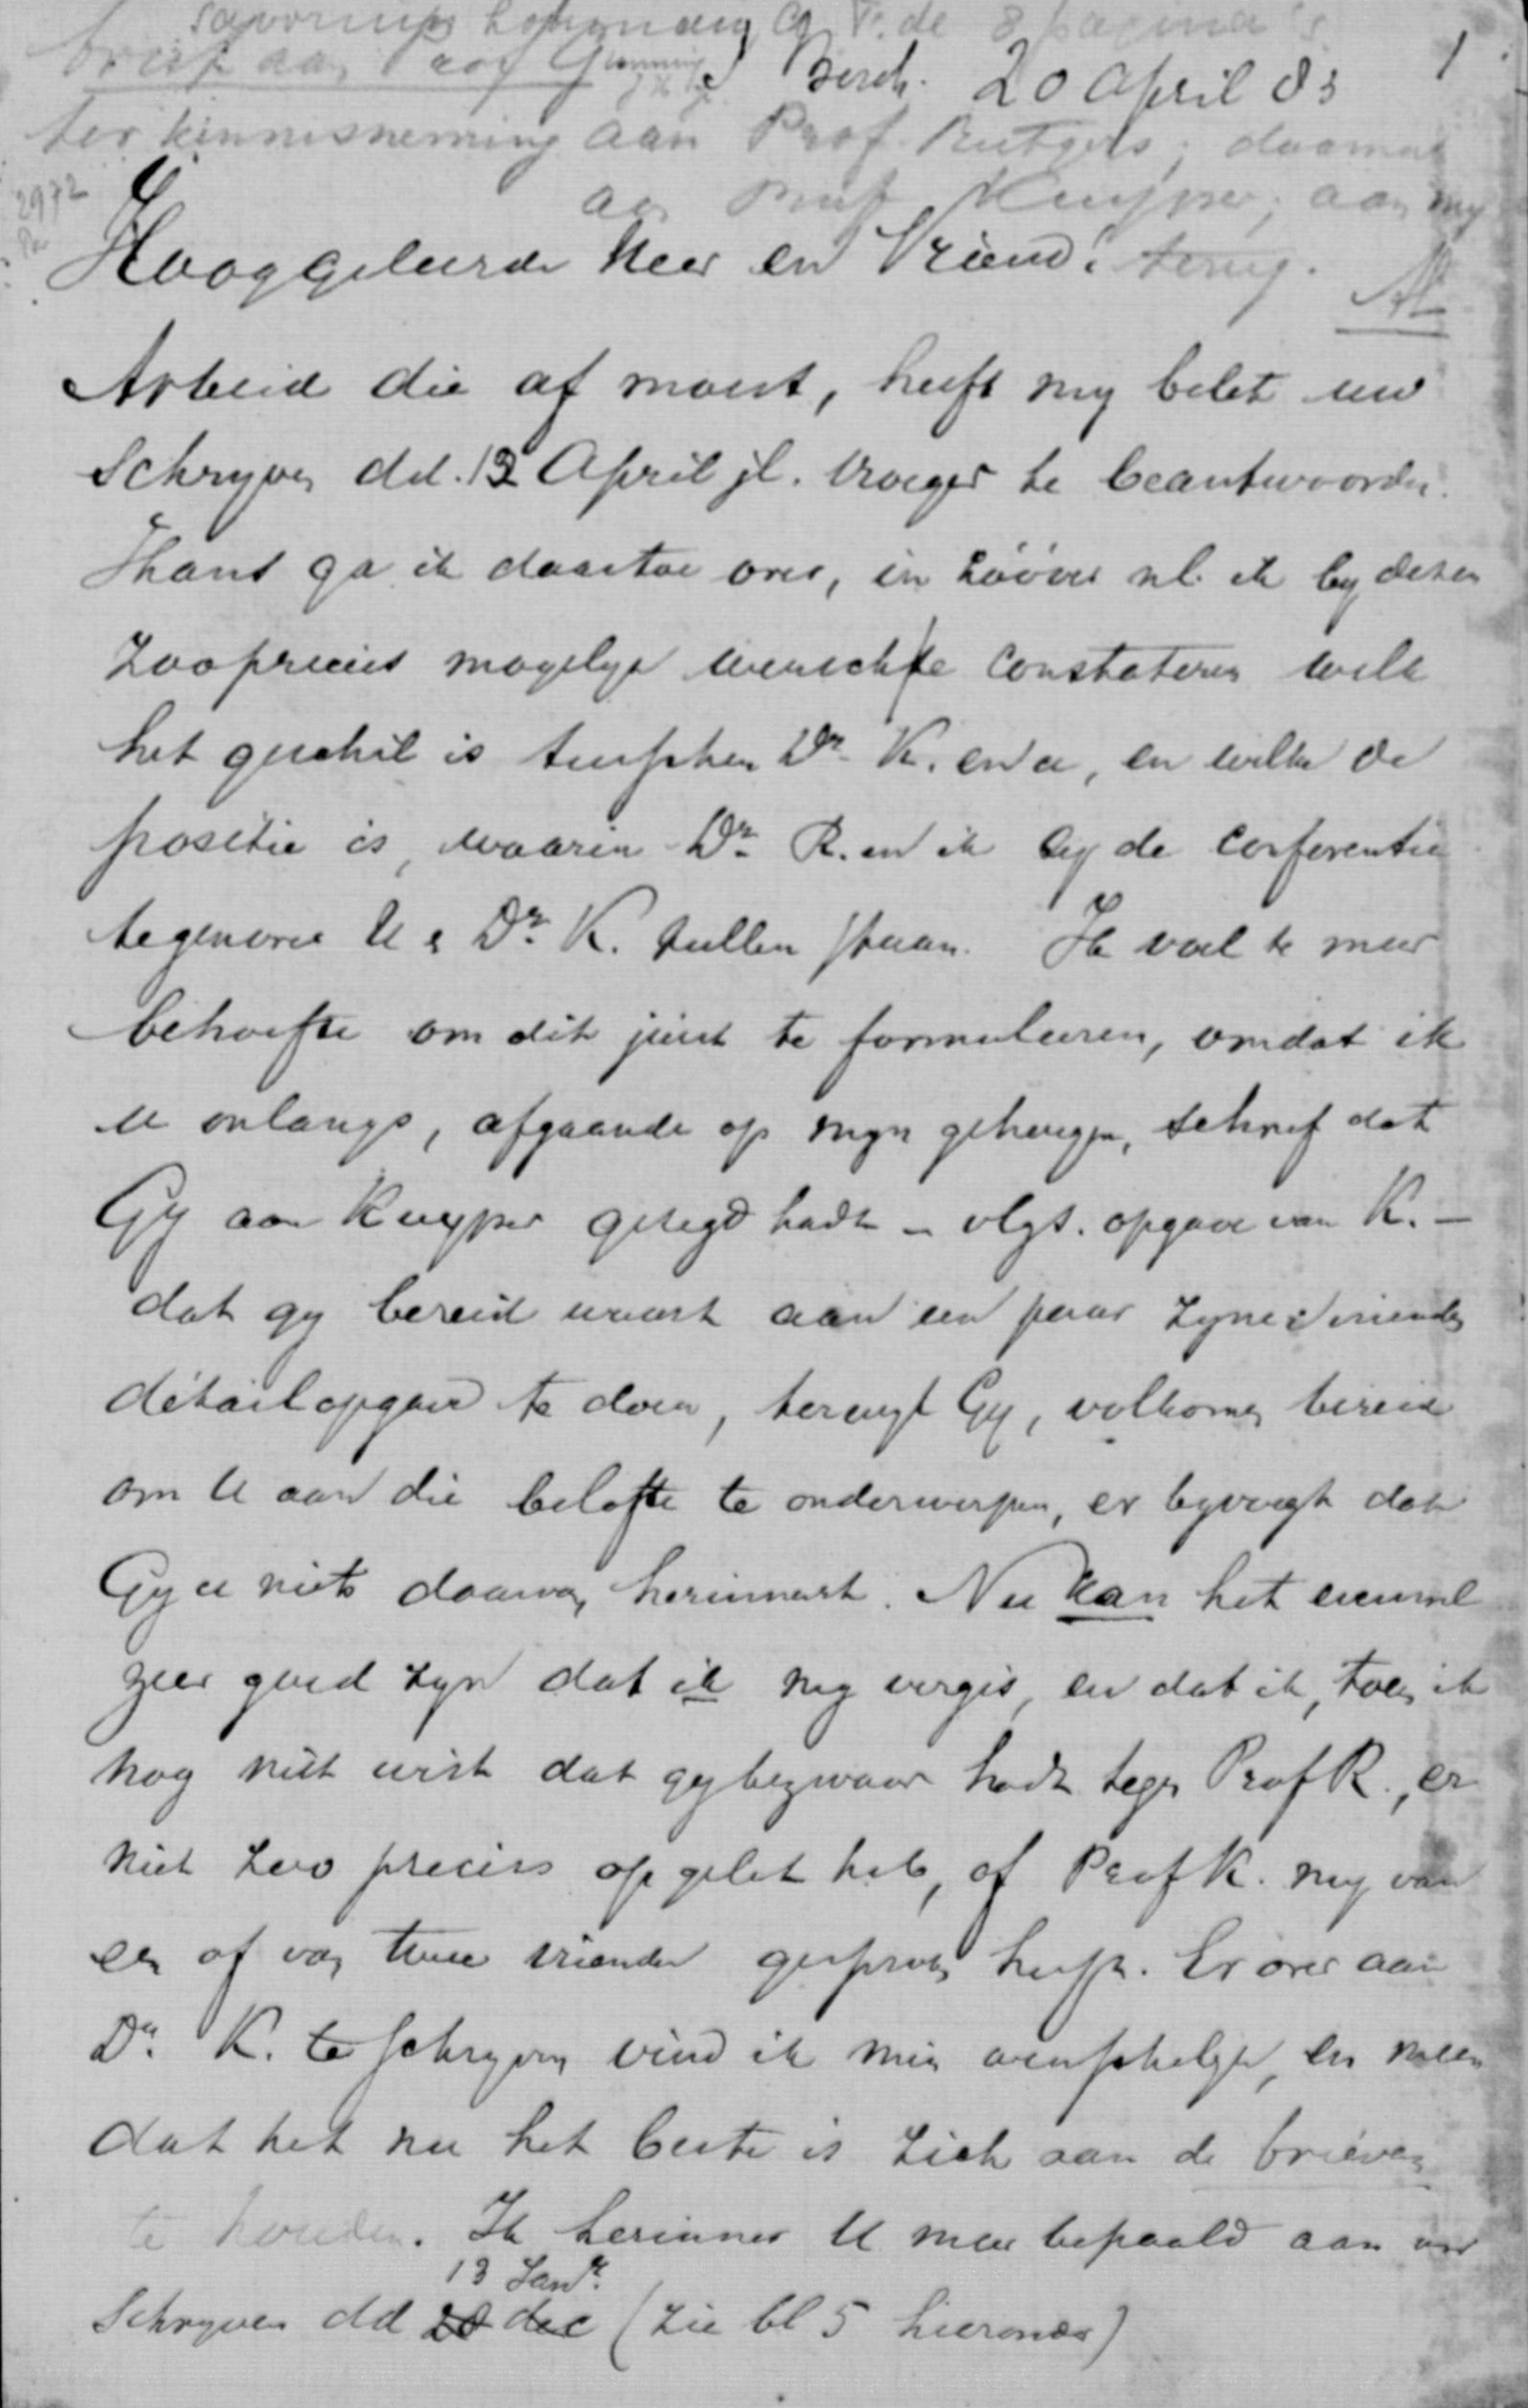 brief aan Prof Gunning
Berch. 20 April 83
1
ter kennisneming aan Prof. Rutgers; daarna
aan Prof Kuyper; aan my
2972
Hooggeleerde Heer en Vriend! terug.
Arbeid die af moest, heeft my belet uw
Schryven dd. 12 April jl. vroeger te beantwoorden.
Thans ga ik daartoe over, in zóóver nl. ik by dezen
zooprecies mogelyk wensch te constateren welk
het geschil is tusschen Dr. K. en u, en welke de
positie is, waarin Dr. R. en ik by de conferentie
tegenover U & Dr. K. zullen staan. Ik voel te meer
behoefte om dit juist te formuleeren, omdat ik
u onlangs, afgaande op myn geheugen, schreef dat
Gy aan Kuyper gezegd hadt – vlgs. opgave van K. –
dat gy bereid waart aan een paar zyner vrienden
détailopgave te doen, terwyl Gy, volkomen bereid
om U aan die belofte te onderwerpen, er byvoegt dat
Gy u niets daarvan herinnert. Nu kan het evenwel
zeer goed zyn dat ik my vergis, en dat ik, toen ik
nog niet wist dat gy bezwaar hadt tegen Prof R., er
niet zoo precies op gelet heb, of Prof K. my van
een of van twee vrienden gesproken heeft. Er over aan
Dr. K. te schryven vind ik min oirbaar, en meen
dat het nu het beste is zich aan de brieven
te houden. Ik herinner U meer bepaald aan uw
13 Janr.
Schryven dd 20 dec (zie bl 5 hieronder)